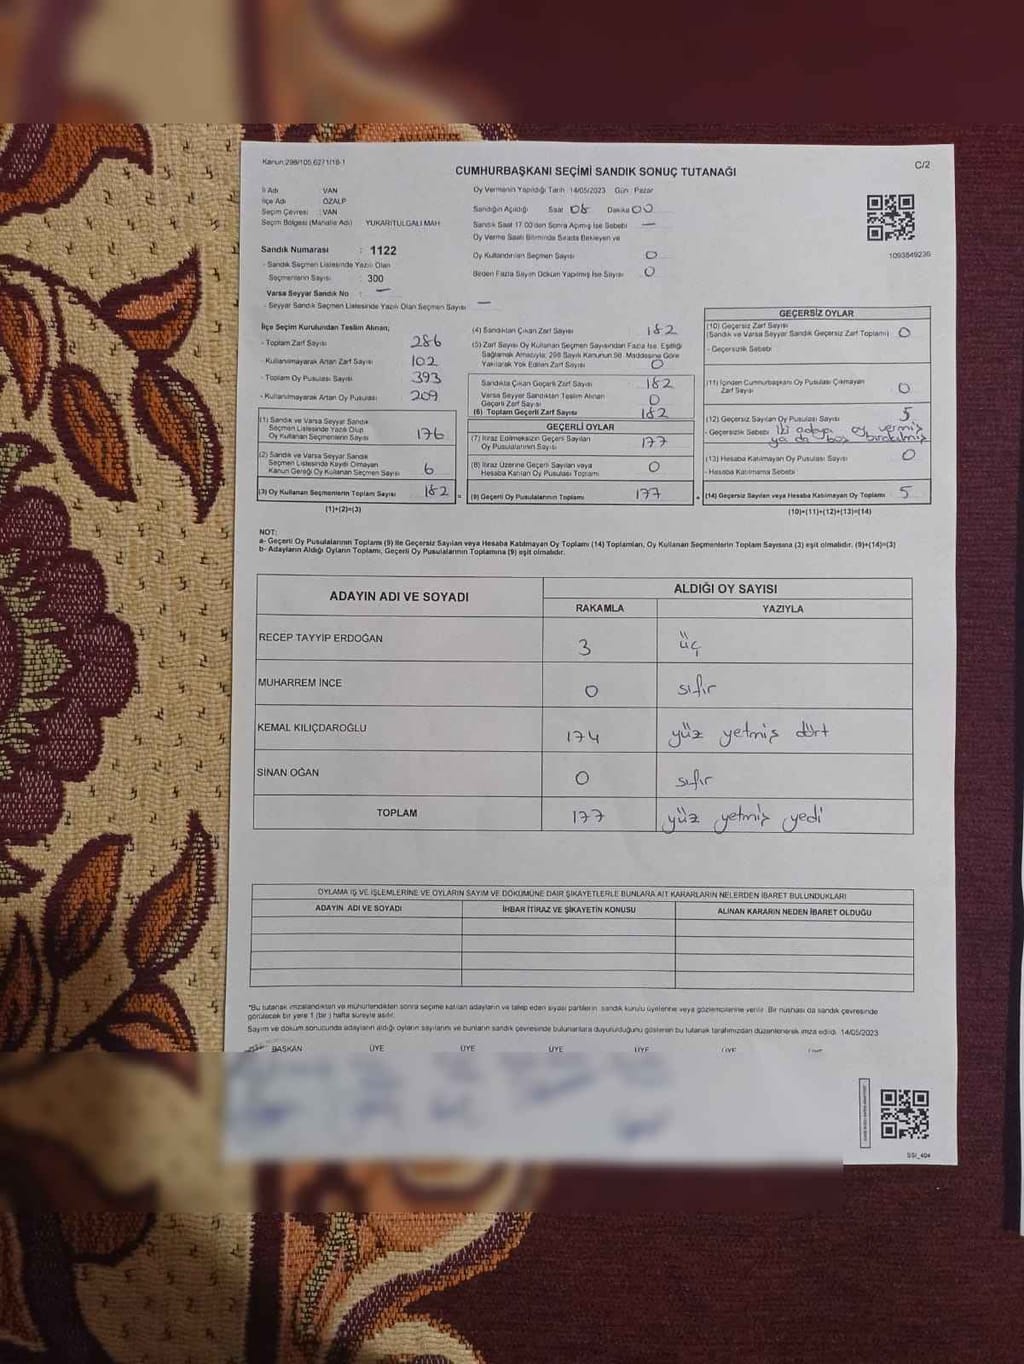 Kanun:298/105,6271/18-1
C/2
CUMHURBAŞKANI SEÇİMİ SANDIK SONUÇ TUTANAĞI
İl Adı : VAN
İlçe Adı : ÖZALP
Seçim Çevresi : VAN
Seçim Bölgesi (Mahalle Adı) : YUKARITULGALI MAH
Sandık Numarası : 1122
- Sandık Seçmen Listesinde Yazılı Olan
Seçmenlerin Sayısı : 300
Varsa Seyyar Sandık No : —
- Seyyar Sandık Seçmen Listesinde Yazılı Olan Seçmen Sayısı —
Oy Vermenin Yapıldığı Tarih : 14/05/2023 Gün : Pazar
Sandığın Açıldığı Saat 08 Dakika 00
Sandık Saat 17.00'den Sonra Açılmış İse Sebebi —
Oy Verme Saati Bitiminde Sırada Bekleyen ve
Oy Kullandırılan Seçmen Sayısı 0
Birden Fazla Sayım Döküm Yapılmış İse Sayısı 0
1093849236
İlçe Seçim Kurulundan Teslim Alınan;
- Toplam Zarf Sayısı 286
- Kullanılmayarak Artan Zarf Sayısı 102
- Toplam Oy Pusulası Sayısı 393
- Kullanılmayarak Artan Oy Pusulası 209
(1) Sandık ve Varsa Seyyar Sandık
Seçmen Listesinde Yazılı Olup
Oy Kullanan Seçmenlerin Sayısı 176
(2) Sandık ve Varsa Seyyar Sandık
Seçmen Listesinde Kaydı Olmayan
Kanun Gereği Oy Kullanan Seçmen Sayısı 6
(3) Oy Kullanan Seçmenlerin Toplam Sayısı 182
(1)+(2)=(3)
(4) Sandıktan Çıkan Zarf Sayısı 182
(5) Zarf Sayısı Oy Kullanan Seçmen Sayısından Fazla İse, Eşitliği
Sağlamak Amacıyla; 298 Sayılı Kanunun 98. Maddesine Göre
Yakılarak Yok Edilen Zarf Sayısı 0
Sandıkta Çıkan Geçerli Zarf Sayısı 182
Varsa Seyyar Sandıktan Teslim Alınan
Geçerli Zarf Sayısı 0
(6) Toplam Geçerli Zarf Sayısı 182
GEÇERLİ OYLAR
(7) İtiraz Edilmeksizin Geçerli Sayılan
Oy Pusulalarının Sayısı 177
(8) İtiraz Üzerine Geçerli Sayılan veya
Hesaba Katılan Oy Pusulası Toplamı 0
(9) Geçerli Oy Pusulalarının Toplamı 177
GEÇERSİZ OYLAR
(10) Geçersiz Zarf Sayısı
(Sandık ve Varsa Seyyar Sandık Geçersiz Zarf Toplamı) 0
- Geçersizlik Sebebi
(11) İçinden Cumhurbaşkanı Oy Pusulası Çıkmayan
Zarf Sayısı 0
(12) Geçersiz Sayılan Oy Pusulası Sayısı 5
- Geçersizlik Sebebi İki adaya oy vermiş
ya da boş bırakılmış
(13) Hesaba Katılmayan Oy Pusulası Sayısı 0
- Hesaba Katılmama Sebebi
(14) Geçersiz Sayılan veya Hesaba Katılmayan Oy Toplamı 5
(10)+(11)+(12)+(13)=(14)
NOT:
a- Geçerli Oy Pusulalarının Toplamı (9) ile Geçersiz Sayılan veya Hesaba Katılmayan Oy Toplamı (14) Toplamları, Oy Kullanan Seçmenlerin Toplam Sayısına (3) eşit olmalıdır. (9)+(14)=(3)
b- Adayların Aldığı Oyların Toplamı, Geçerli Oy Pusulalarının Toplamına (9) eşit olmalıdır.
ADAYIN ADI VE SOYADI ALDIĞI OY SAYISI
RAKAMLA YAZIYLA
RECEP TAYYİP ERDOĞAN 3 üç
MUHARREM İNCE 0 sıfır
KEMAL KILIÇDAROĞLU 174 yüz yetmiş dört
SİNAN OĞAN 0 sıfır
TOPLAM 177 yüz yetmiş yedi
OYLAMA İŞ VE İŞLEMLERİNE VE OYLARIN SAYIM VE DÖKÜMÜNE DAİR ŞİKAYETLERLE BUNLARA AİT KARARLARIN NELERDEN İBARET BULUNDUKLARI
ADAYIN ADI VE SOYADI İHBAR İTİRAZ VE ŞİKAYETİN KONUSU ALINAN KARARIN NEDEN İBARET OLDUĞU
*Bu tutanak imzalandıktan ve mühürlendikten sonra seçime katılan adayların ve talep eden siyasi partilerin sandık kurulu üyelerine veya gözlemcilerine verilir. Bir nüshası da sandık çevresinde
görülecek bir yere 1 (bir) hafta süreyle asılır.
Sayım ve döküm sonucunda adayların aldığı oyların sayılarını ve bunların sandık çevresinde bulunanlara duyurulduğunu gösteren bu tutanak tarafımızdan düzenlenerek imza edildi. 14/05/2023
BAŞKAN ÜYE ÜYE ÜYE ÜYE ÜYE
SSI_404